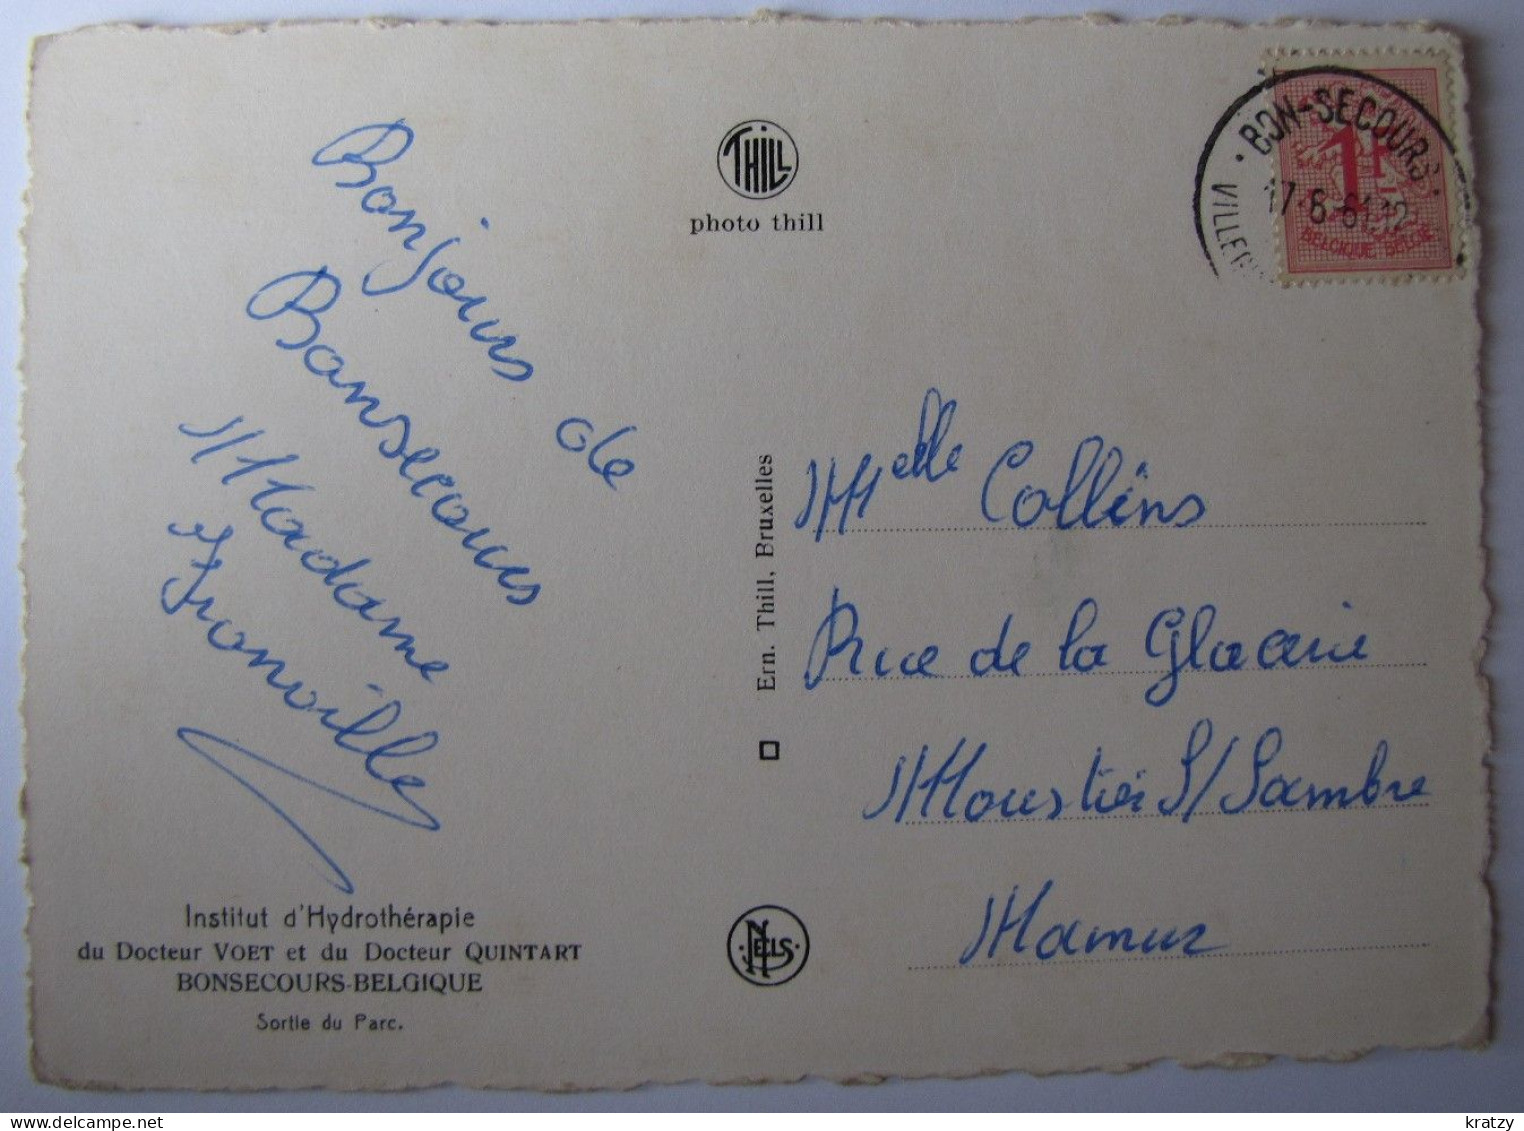 Bonjours de
Bonsecours
Madame
Fronville
Institut d'Hydrothérapie
du Docteur VOET et du Docteur QUINTART
BONSECOURS-BELGIQUE
Sortie du Parc.
THILL
photo thill
Ern. Thill, Bruxelles
NELS
BON-SECOURS
17-6-61.12
1F
BELGIQUE-BELGIE
Melle Collins
Rue de la Glacerie
Moustier S/Sambre
Namur
delcampe.net
kratzy